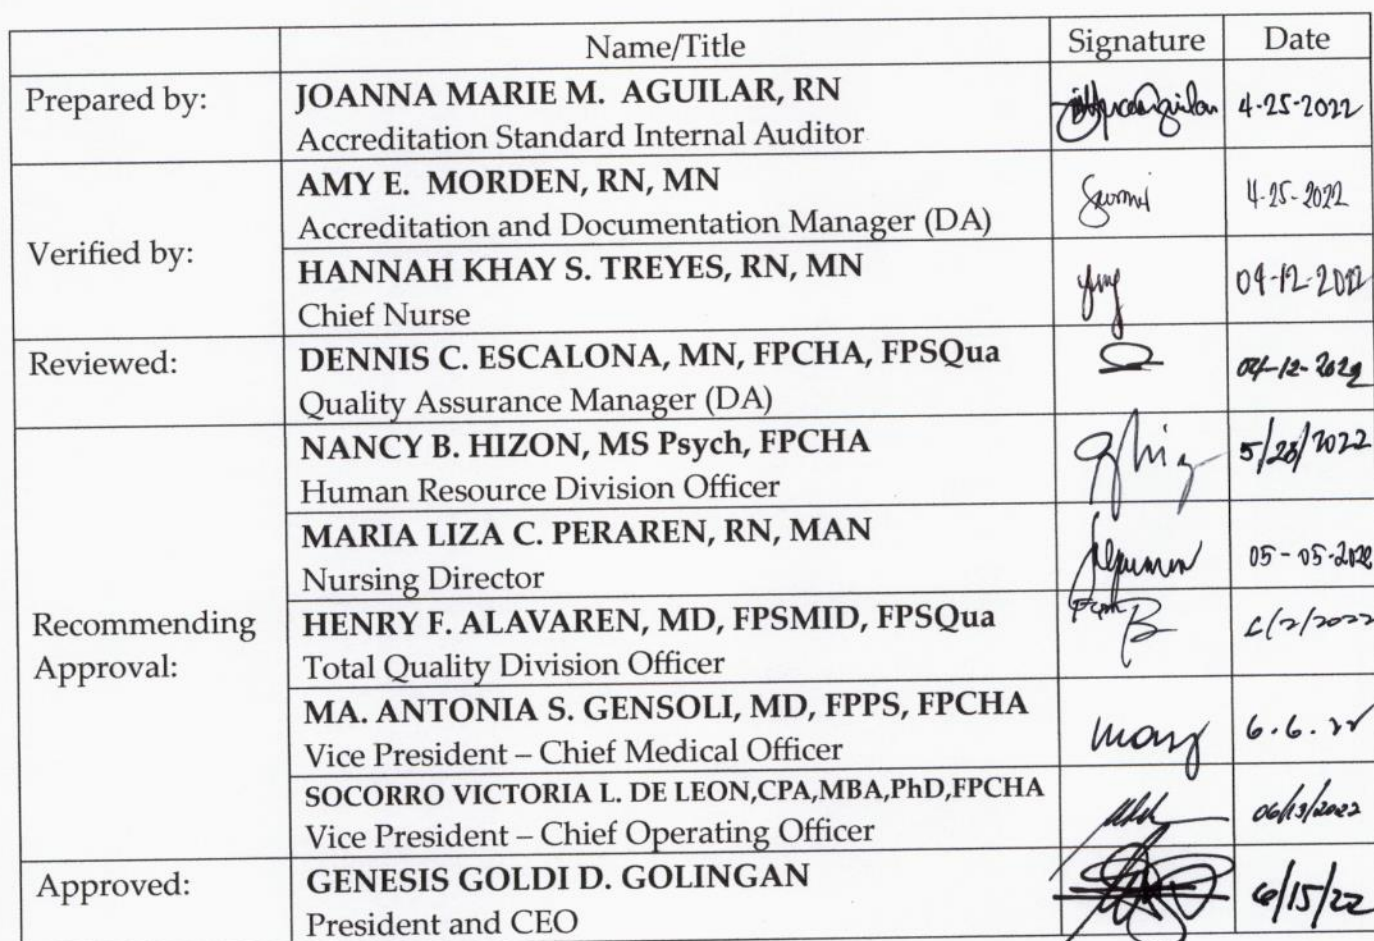 Name/Title Signature Date
Prepared by: JOANNA MARIE M. AGUILAR, RN 4-25-2022
Accreditation Standard Internal Auditor
Verified by:
AMY E. MORDEN, RN, MN 4-25-2022
Accreditation and Documentation Manager (DA)
HANNAH KHAY S. TREYES, RN, MN 04-12-2022
Chief Nurse
Reviewed: DENNIS C. ESCALONA, MN, FPCHA, FPSQua 04-12-2022
Quality Assurance Manager (DA)
Recommending
Approval:
NANCY B. HIZON, MS Psych, FPCHA
Human Resource Division Officer
MARIA LIZA C. PERAREN, RN, MAN 05-05-2022
Nursing Director
HENRY F. ALAVAREN, MD, FPSMID, FPSQua
Total Quality Division Officer
MA. ANTONIA S. GENSOLI, MD, FPPS, FPCHA 6.6.22
Vice President – Chief Medical Officer
SOCORRO VICTORIA L. DE LEON,CPA,MBA,PhD,FPCHA 06/13/2022
Vice President – Chief Operating Officer
Approved: GENESIS GOLDI D. GOLINGAN 6/15/22
President and CEO